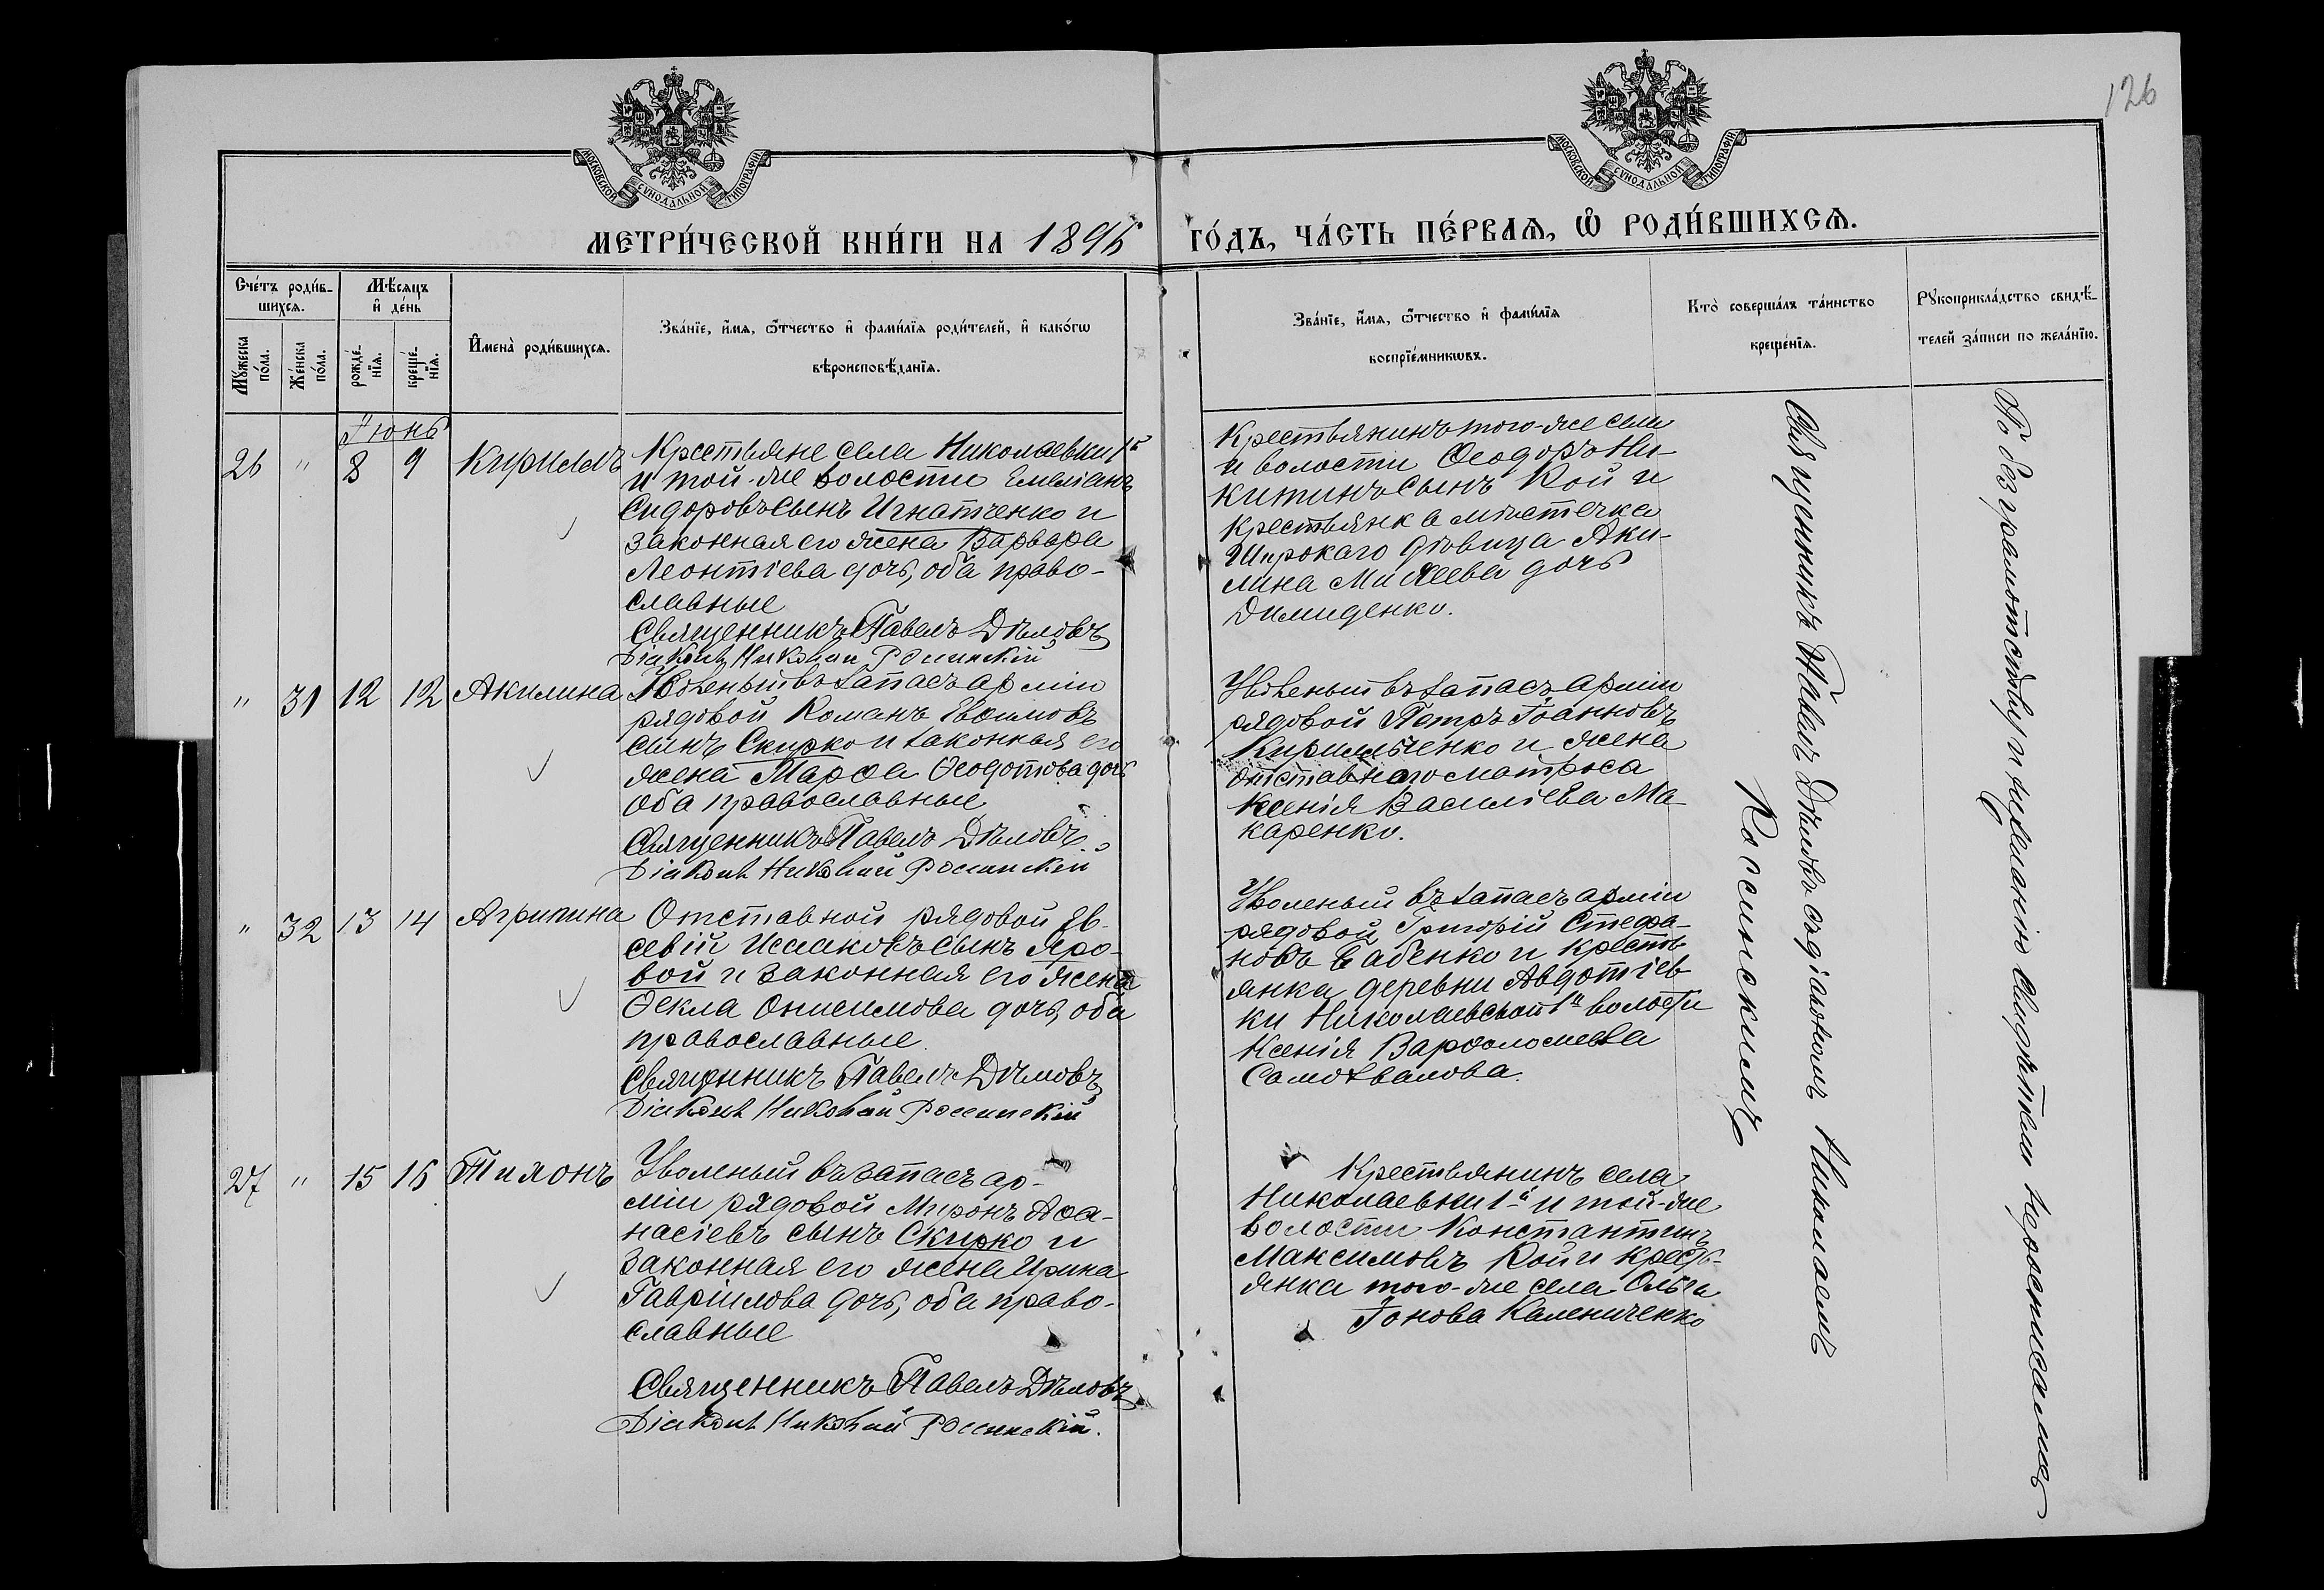 126
МОСКОВСКОЙ СѴНОДАЛЬНОЙ ТИПОГРАФІИ
МОСКОВСКОЙ СѴНОДАЛЬНОЙ ТИПОГРАФІИ
МЕТРИ́ЧЕСКОЙ КНИ́ГИ НА 1896 ГО́ДЪ, ЧА́СТЬ ПЕ́РВАѦ, Ѽ РОДИ́ВШИХСѦ.
Сче́тъ роди́в-
шихсѧ.
Мꙋжеска по́ла.
Же́нска по́ла.
Мѣ́сѧцъ
и҆ де́нь
рожде́-
нїѧ.
креще́-
нїѧ.
И҆мена̀ роди́вшихсѧ.
Зва́нїе, и҆́мѧ, ѻ҆́тчество и҆ фами́лїѧ роди́телей, и҆ како́гѡ
вѣроисповѣ́данїѧ.
Зва́нїе, и҆́мѧ, ѻ҆́тчество и҆ фами́лїѧ
воспрїе́мникѡвъ.
Кто̀ соверша́лъ та́инство
креще́нїѧ.
Рꙋкоприкла́дство свидѣ́-
телей за́писи по жела́нїю.
Іюнь
26 " 8 9 Кириллъ
Крестьяне села Николаевки 1й
и той-же волости Емеліанъ
Сидоровъ сынъ Игнатченко и
законная его жена Варвара
Леонтіева дочь, оба право-
славные
Священникъ Павелъ Дѣловъ
Діаконъ Николай Россинскій
Крестьянинъ того-же села
и волости Ѳеодоръ Ни-
китинъ сынъ Кой и
крестьянка мѣстечка
Широкаго дѣвица Аки-
лина Михеева дочь
Димиденко.
" 31 12 12 Акилина
Уволеный въ запасъ арміи
рядовой Романъ Евѳимовъ
сынъ Скирко и законная его
жена Марѳа Ѳеодотова дочь
оба православные
Священникъ Павелъ Дѣловъ
Діаконъ Николай Россинскій
Уволеный въ запасъ арміи
рядовой Петръ Іоанновъ
Кириленко и жена
отставного матроса
Ксенія Василіева Ма-
каренко.
" 32 13 14 Агрипина
Отставной рядовой Ев-
севій Исааковъ сынъ Яро-
вой и законная его жена
Ѳекла Онисимова дочь, оба
православные
Священникъ Павелъ Дѣловъ
Діаконъ Николай Россинскій
Уволеный въ запасъ арміи
рядовой Григорій Стефа-
новъ Бабенко и кресть-
янка деревни Авдотіев-
ки Николаевской 1й волости
Ксенія Варѳоломеева
Самохвалова.
27 " 15 16 Тихонъ
Уволеный въ запасъ ар-
міи рядовой Миронъ Аѳа-
насіевъ сынъ Скирко и
законная его жена Ирина
Гавріилова дочь, оба право-
славные
Священникъ Павелъ Дѣловъ
Діаконъ Николай Россинскій.
Крестьянинъ села
Николаевки 1й и той-же
волости Константинъ
Максимовъ Кой и кресть-
янка того-же села Ольга
Іонова Калениченко
Священникъ Павелъ Дѣловъ съ діакономъ Николаемъ
Россинскимъ
По безграмотству и нежеланію свидѣтели не росписались